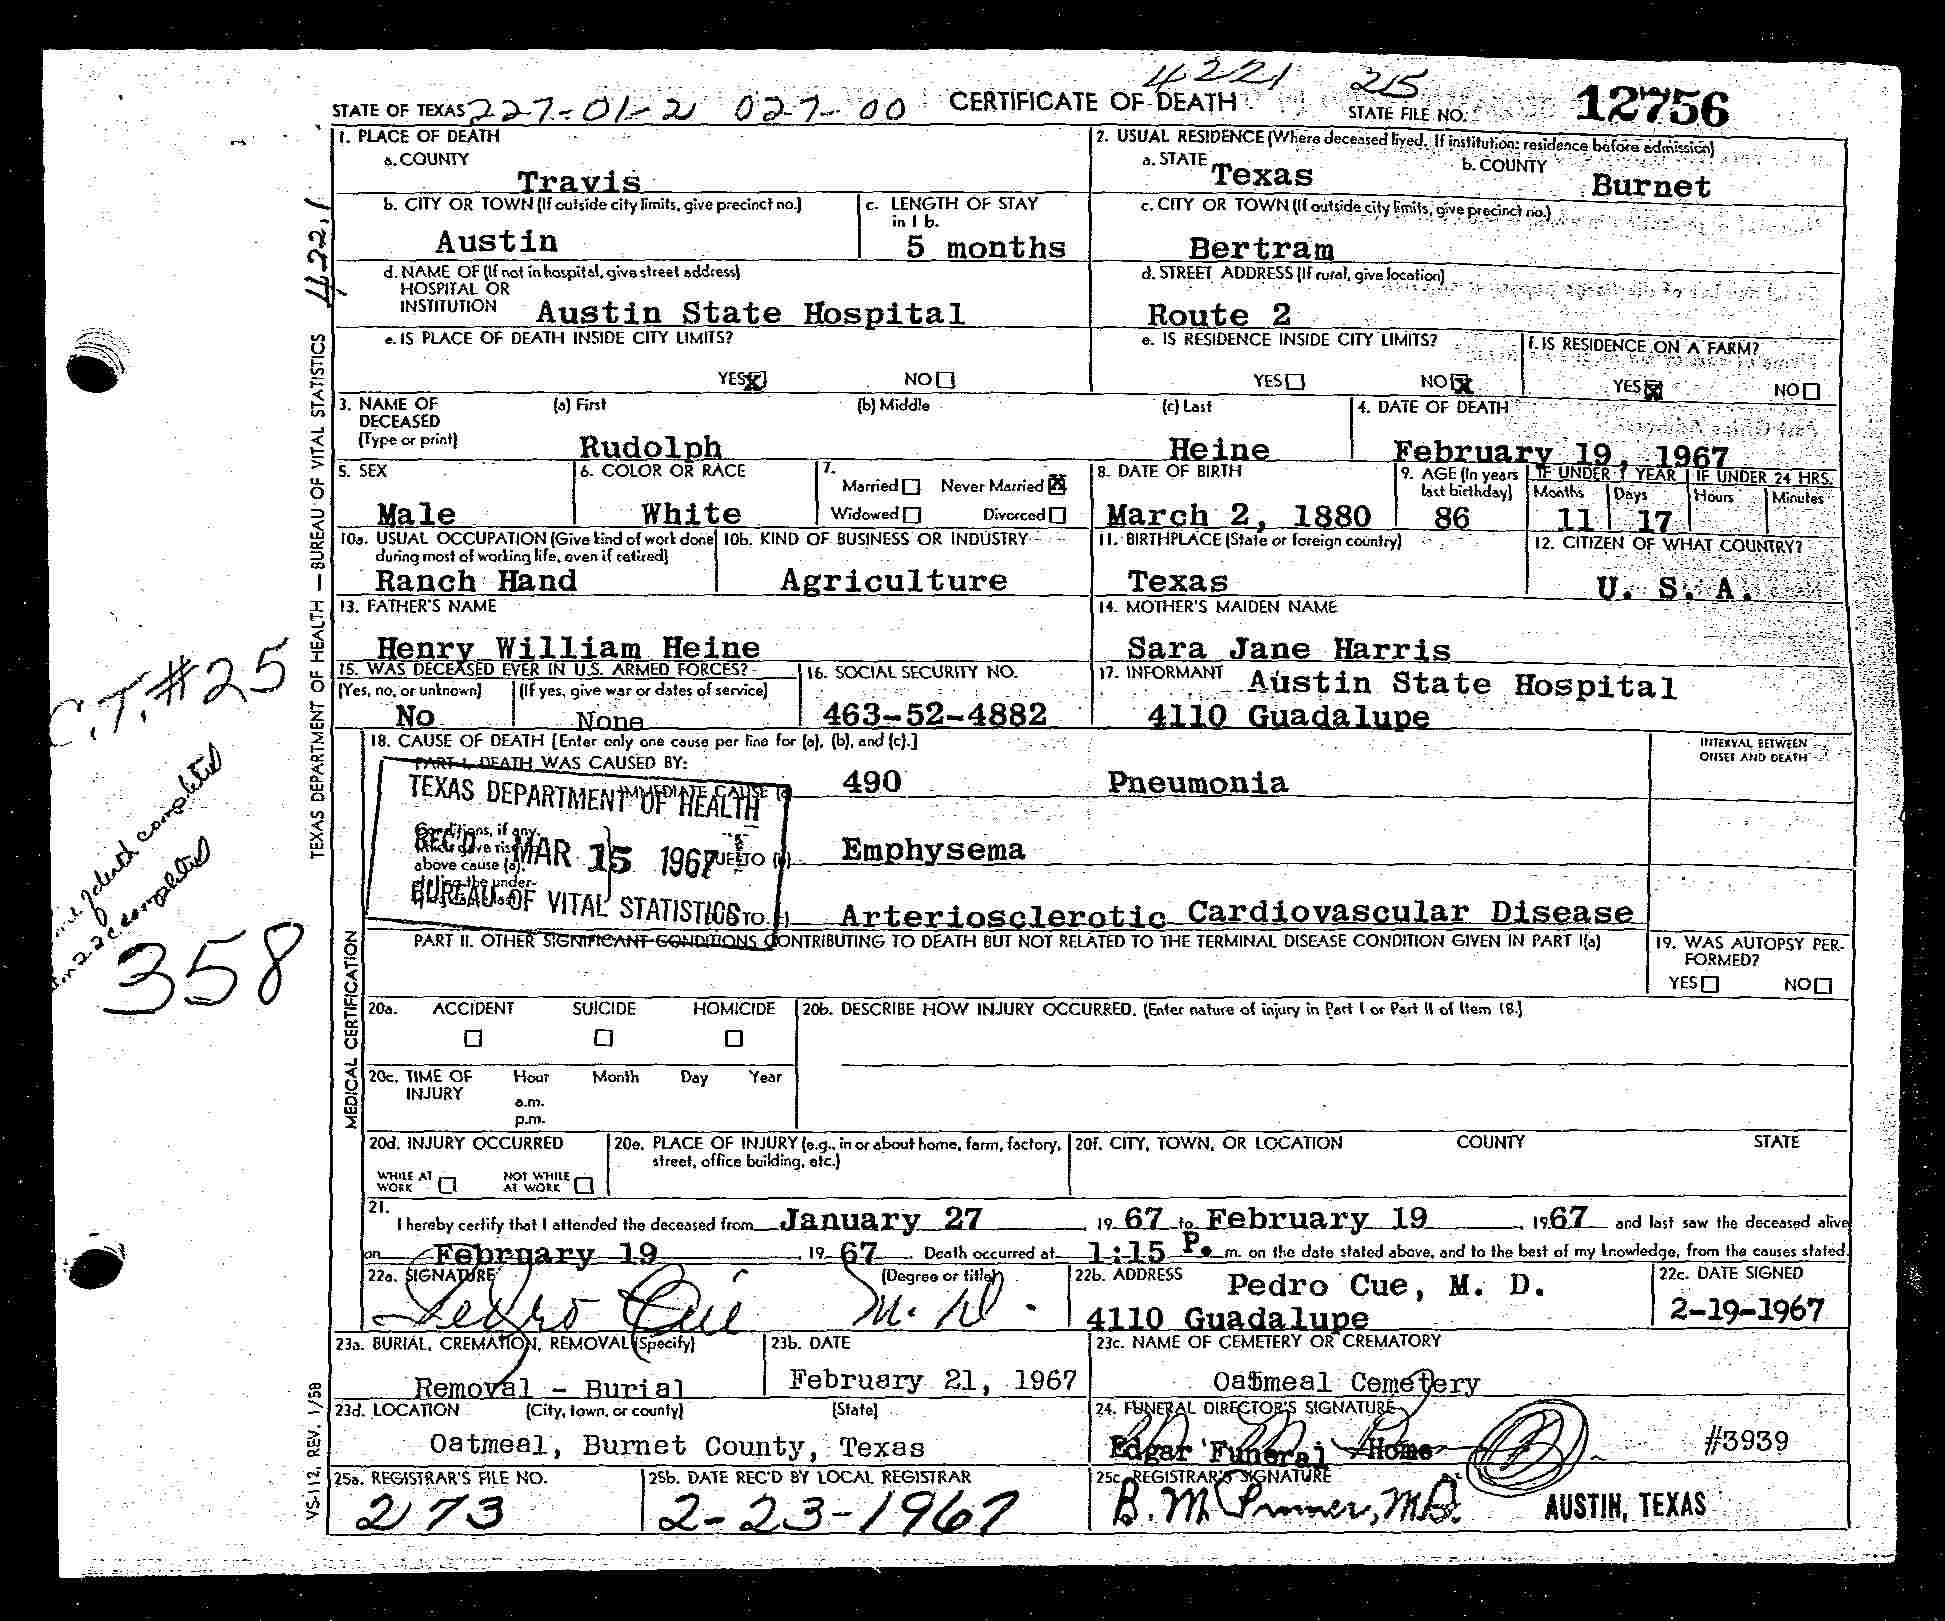 4221 215
STATE OF TEXAS 227-01-2 027-00 CERTIFICATE OF DEATH STATE FILE NO. 12756
1. PLACE OF DEATH
a. COUNTY
Travis
2. USUAL RESIDENCE (Where deceased lived. If institution: residence before admission)
a. STATE Texas b. COUNTY Burnet
b. CITY OR TOWN (If outside city limits, give precinct no.)
Austin
c. LENGTH OF STAY
in 1 b.
5 months
c. CITY OR TOWN (If outside city limits, give precinct no.)
Bertram
d. NAME OF (If not in hospital, give street address)
HOSPITAL OR
INSTITUTION Austin State Hospital
d. STREET ADDRESS (If rural, give location)
Route 2
e. IS PLACE OF DEATH INSIDE CITY LIMITS?
YES X NO
e. IS RESIDENCE INSIDE CITY LIMITS?
YES NO X
f. IS RESIDENCE ON A FARM?
YES X NO
3. NAME OF DECEASED (Type or print)
(a) First (b) Middle (c) Last
Rudolph Heine
4. DATE OF DEATH
February 19, 1967
5. SEX
Male
6. COLOR OR RACE
White
7.
Married Never Married X
Widowed Divorced
8. DATE OF BIRTH
March 2, 1880
9. AGE (In years last birthday)
86
IF UNDER 1 YEAR IF UNDER 24 HRS.
Months Days Hours Minutes
11 17
10a. USUAL OCCUPATION (Give kind of work done
during most of working life, even if retired)
Ranch Hand
10b. KIND OF BUSINESS OR INDUSTRY
Agriculture
11. BIRTHPLACE (State or foreign country)
Texas
12. CITIZEN OF WHAT COUNTRY?
U. S. A.
13. FATHER'S NAME
Henry William Heine
14. MOTHER'S MAIDEN NAME
Sara Jane Harris
15. WAS DECEASED EVER IN U.S. ARMED FORCES?
(Yes, no, or unknown) (If yes, give war or dates of service)
No None
16. SOCIAL SECURITY NO.
463-52-4882
17. INFORMANT Austin State Hospital
4110 Guadalupe
18. CAUSE OF DEATH [Enter only one cause per line for (a), (b), and (c).]
INTERVAL BETWEEN
ONSET AND DEATH
PART I. DEATH WAS CAUSED BY:
IMMEDIATE CAUSE (a) 490 Pneumonia
Conditions, if any,
which gave rise
above cause (a),
DUE TO (b) Emphysema
Arteriosclerotic Cardiovascular Disease
TEXAS DEPARTMENT OF HEALTH
REC'D MAR 15 1967
BUREAU OF VITAL STATISTICS
PART II. OTHER SIGNIFICANT CONDITIONS CONTRIBUTING TO DEATH BUT NOT RELATED TO THE TERMINAL DISEASE CONDITION GIVEN IN PART I(a)
19. WAS AUTOPSY PER-
FORMED?
YES NO
20a. ACCIDENT SUICIDE HOMICIDE
20b. DESCRIBE HOW INJURY OCCURRED. (Enter nature of injury in Part I or Part II of Item 18.)
20c. TIME OF INJURY Hour Month Day Year
a.m.
p.m.
20d. INJURY OCCURRED
WHILE AT WORK NOT WHILE AT WORK
20e. PLACE OF INJURY (e.g., in or about home, farm, factory,
street, office building, etc.)
20f. CITY, TOWN, OR LOCATION COUNTY STATE
21.
I hereby certify that I attended the deceased from January 27, 19 67 to February 19, 1967 and last saw the deceased alive
on February 19, 19 67. Death occurred at 1:15 P. m. on the date stated above, and to the best of my knowledge, from the causes stated.
22a. SIGNATURE (Degree or title)
Pedro Cue M.D.
22b. ADDRESS Pedro Cue, M. D.
4110 Guadalupe
22c. DATE SIGNED
2-19-1967
23a. BURIAL, CREMATION, REMOVAL (Specify)
Removal - Burial
23b. DATE
February 21, 1967
23c. NAME OF CEMETERY OR CREMATORY
Oatmeal Cemetery
23d. LOCATION (City, town, or county) (State)
Oatmeal, Burnet County, Texas
24. FUNERAL DIRECTOR'S SIGNATURE
Edgar Funeral Home #3939
25a. REGISTRAR'S FILE NO.
273
25b. DATE REC'D BY LOCAL REGISTRAR
2-23-1967
25c. REGISTRAR'S SIGNATURE
B. M. Primer, M.D. AUSTIN, TEXAS
TEXAS DEPARTMENT OF HEALTH — BUREAU OF VITAL STATISTICS
422.1
MEDICAL CERTIFICATION
VS-112, REV. 1/58
C.T. #25
completed
22c completed
358